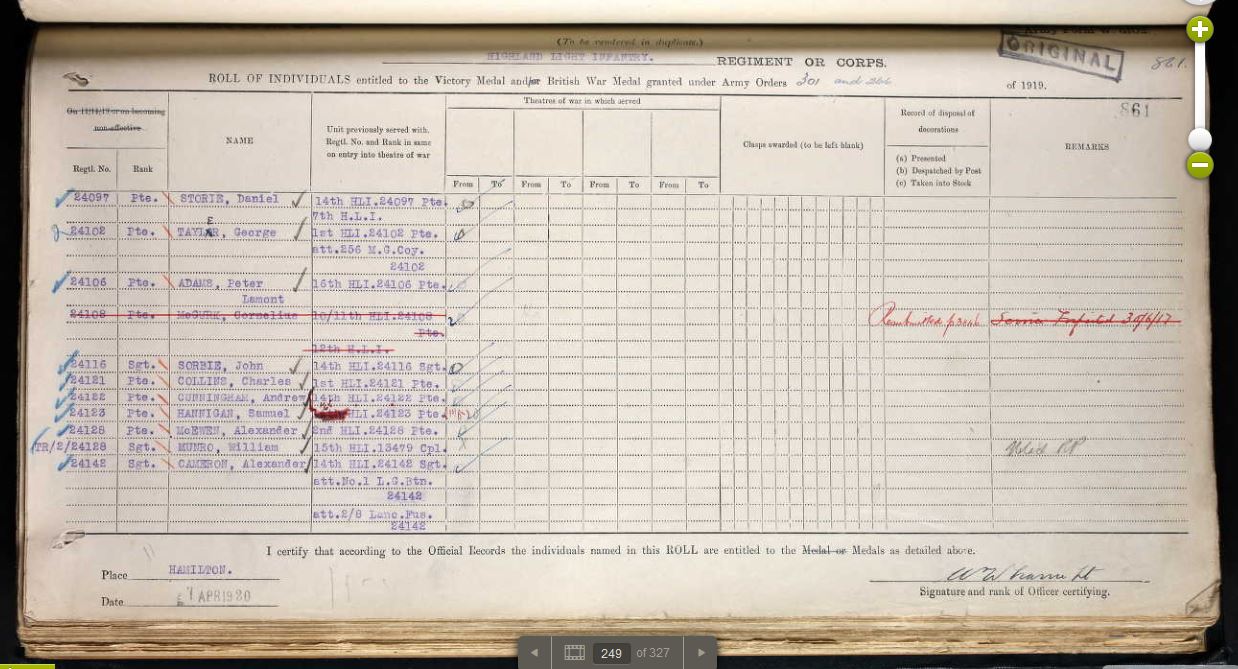 (To be rendered in duplicate.)
HIGHLAND LIGHT INFANTRY. REGIMENT OR CORPS.
ORIGINAL
861.
ROLL OF INDIVIDUALS entitled to the Victory Medal and/or British War Medal granted under Army Orders 301 and 266 of 1919.
861
On 11/11/19 or on becoming non-effective
Regtl. No. Rank
NAME
Unit previously served with. Regtl. No. and Rank in same on entry into theatre of war
Theatres of war in which served
From To From To From To From To
Clasps awarded (to be left blank)
Record of disposal of decorations
(a) Presented
(b) Despatched by Post
(c) Taken into Stock
REMARKS
24097 Pte. STORIE, Daniel 14th HLI.24097 Pte.
7th H.L.I.
24102 Pte. TAYLER, George 1st HLI.24102 Pte.
att.256 M.G.Coy.
24102
24106 Pte. ADAMS, Peter 16th HLI.24106 Pte.
Lamont
24108 Pte. McGURK, Cornelius 10/11th HLI.24108
Pte.
12th H.L.I.
24116 Sgt. SORBIE, John 14th HLI.24116 Sgt.
24121 Pte. COLLINS, Charles 1st HLI.24121 Pte.
24122 Pte. CUNNINGHAM, Andrew 14th HLI.24122 Pte.
24123 Pte. HANNIGAN, Samuel HLI.24123 Pte.
24128 Pte. McEWEN, Alexander 2nd HLI.24128 Pte.
TR/2/24128 Sgt. MUNRO, William 15th HLI.13479 Cpl.
24142 Sgt. CAMERON, Alexander 14th HLI.24142 Sgt.
att.No.1 L.G.Btn.
24142
att.2/8 Lanc.Fus.
24142
I certify that according to the Official Records the individuals named in this ROLL are entitled to the Medal or Medals as detailed above.
Place HAMILTON.
Date APR 1920
Signature and rank of Officer certifying.
249 of 327